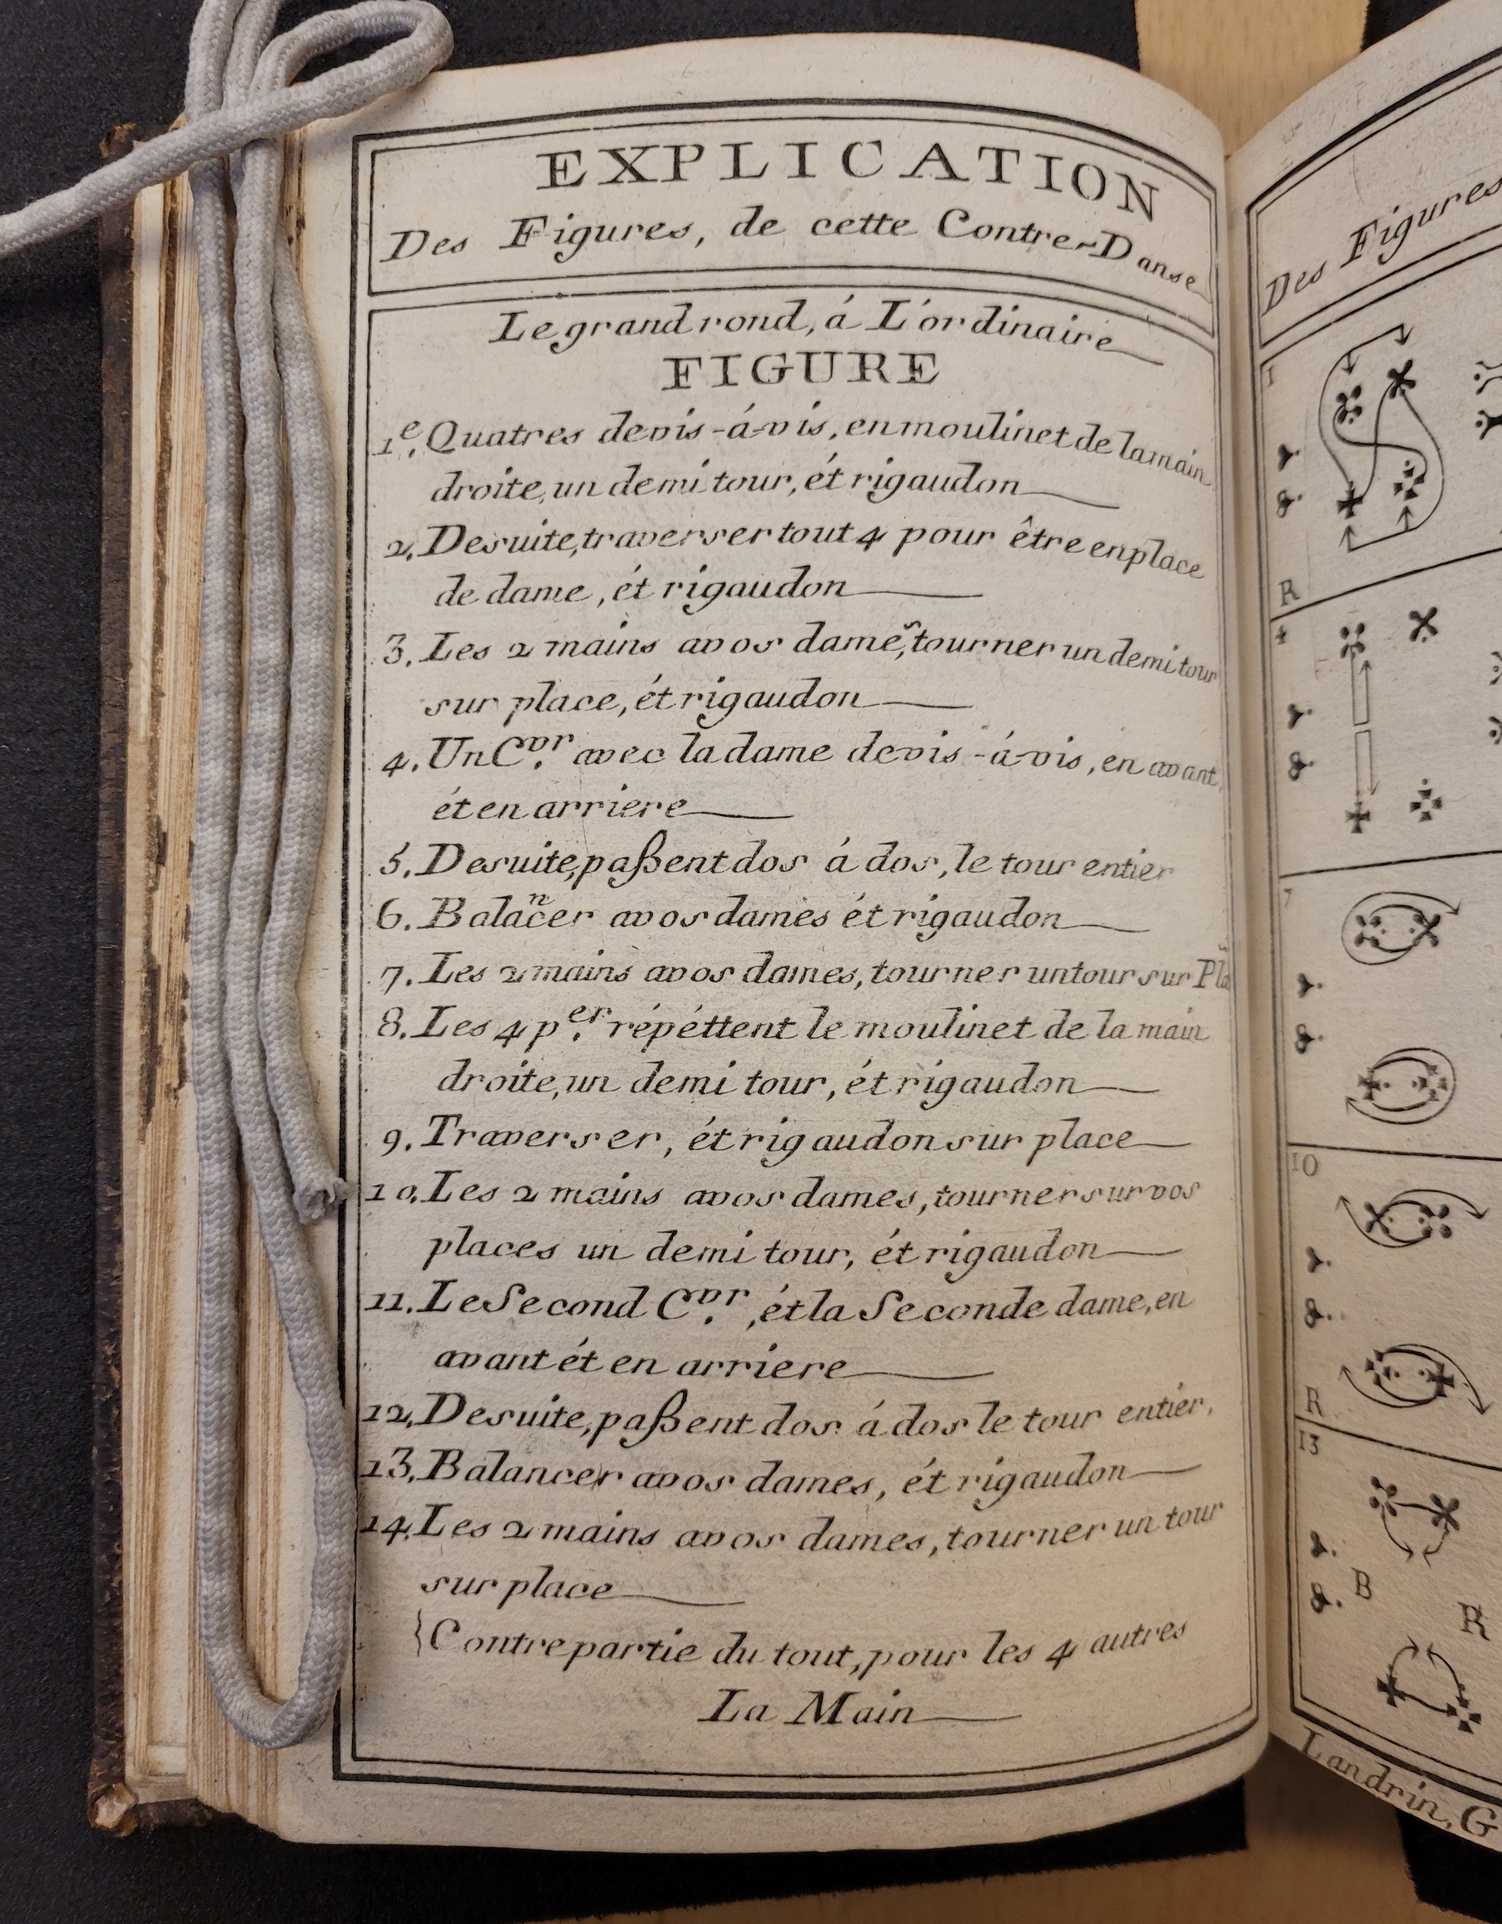 EXPLICATION
Des Figures, de cette Contre-Danse
Le grand rond, á L'ordinaire
FIGURE
1.e Quatres de vis-á-vis, en moulinet de la main
droite, un demi tour, ét rigaudon
2. De suite, traverser tout 4 pour être en place
de dame, ét rigaudon
3. Les 2 mains a vos dames, tourner un demi tour
sur place, ét rigaudon
4. Un C.vr avec la dame de vis-á-vis, en avant,
ét en arriere
5. De suite, paßent dos á dos, le tour entier
6. Balancer a vos dames ét rigaudon
7. Les 2 mains a vos dames, tourner un tour sur Pla
8. Les 4 p.er répéttent le moulinet de la main
droite, un demi tour, ét rigaudon
9. Traverser, ét rigaudon sur place
10. Les 2 mains a vos dames, tourner sur vos
places un demi tour, ét rigaudon
11. Le Second C.vr, ét la Seconde dame, en
avant ét en arriere
12. De suite, paßent dos á dos le tour entier,
13. Balancer a vos dames, ét rigaudon
14. Les 2 mains a vos dames, tourner un tour
sur place
{Contre partie du tout, pour les 4 autres
La Main
Des Figures
1
R
4
7
10
R
13
B
R
Landrin, G